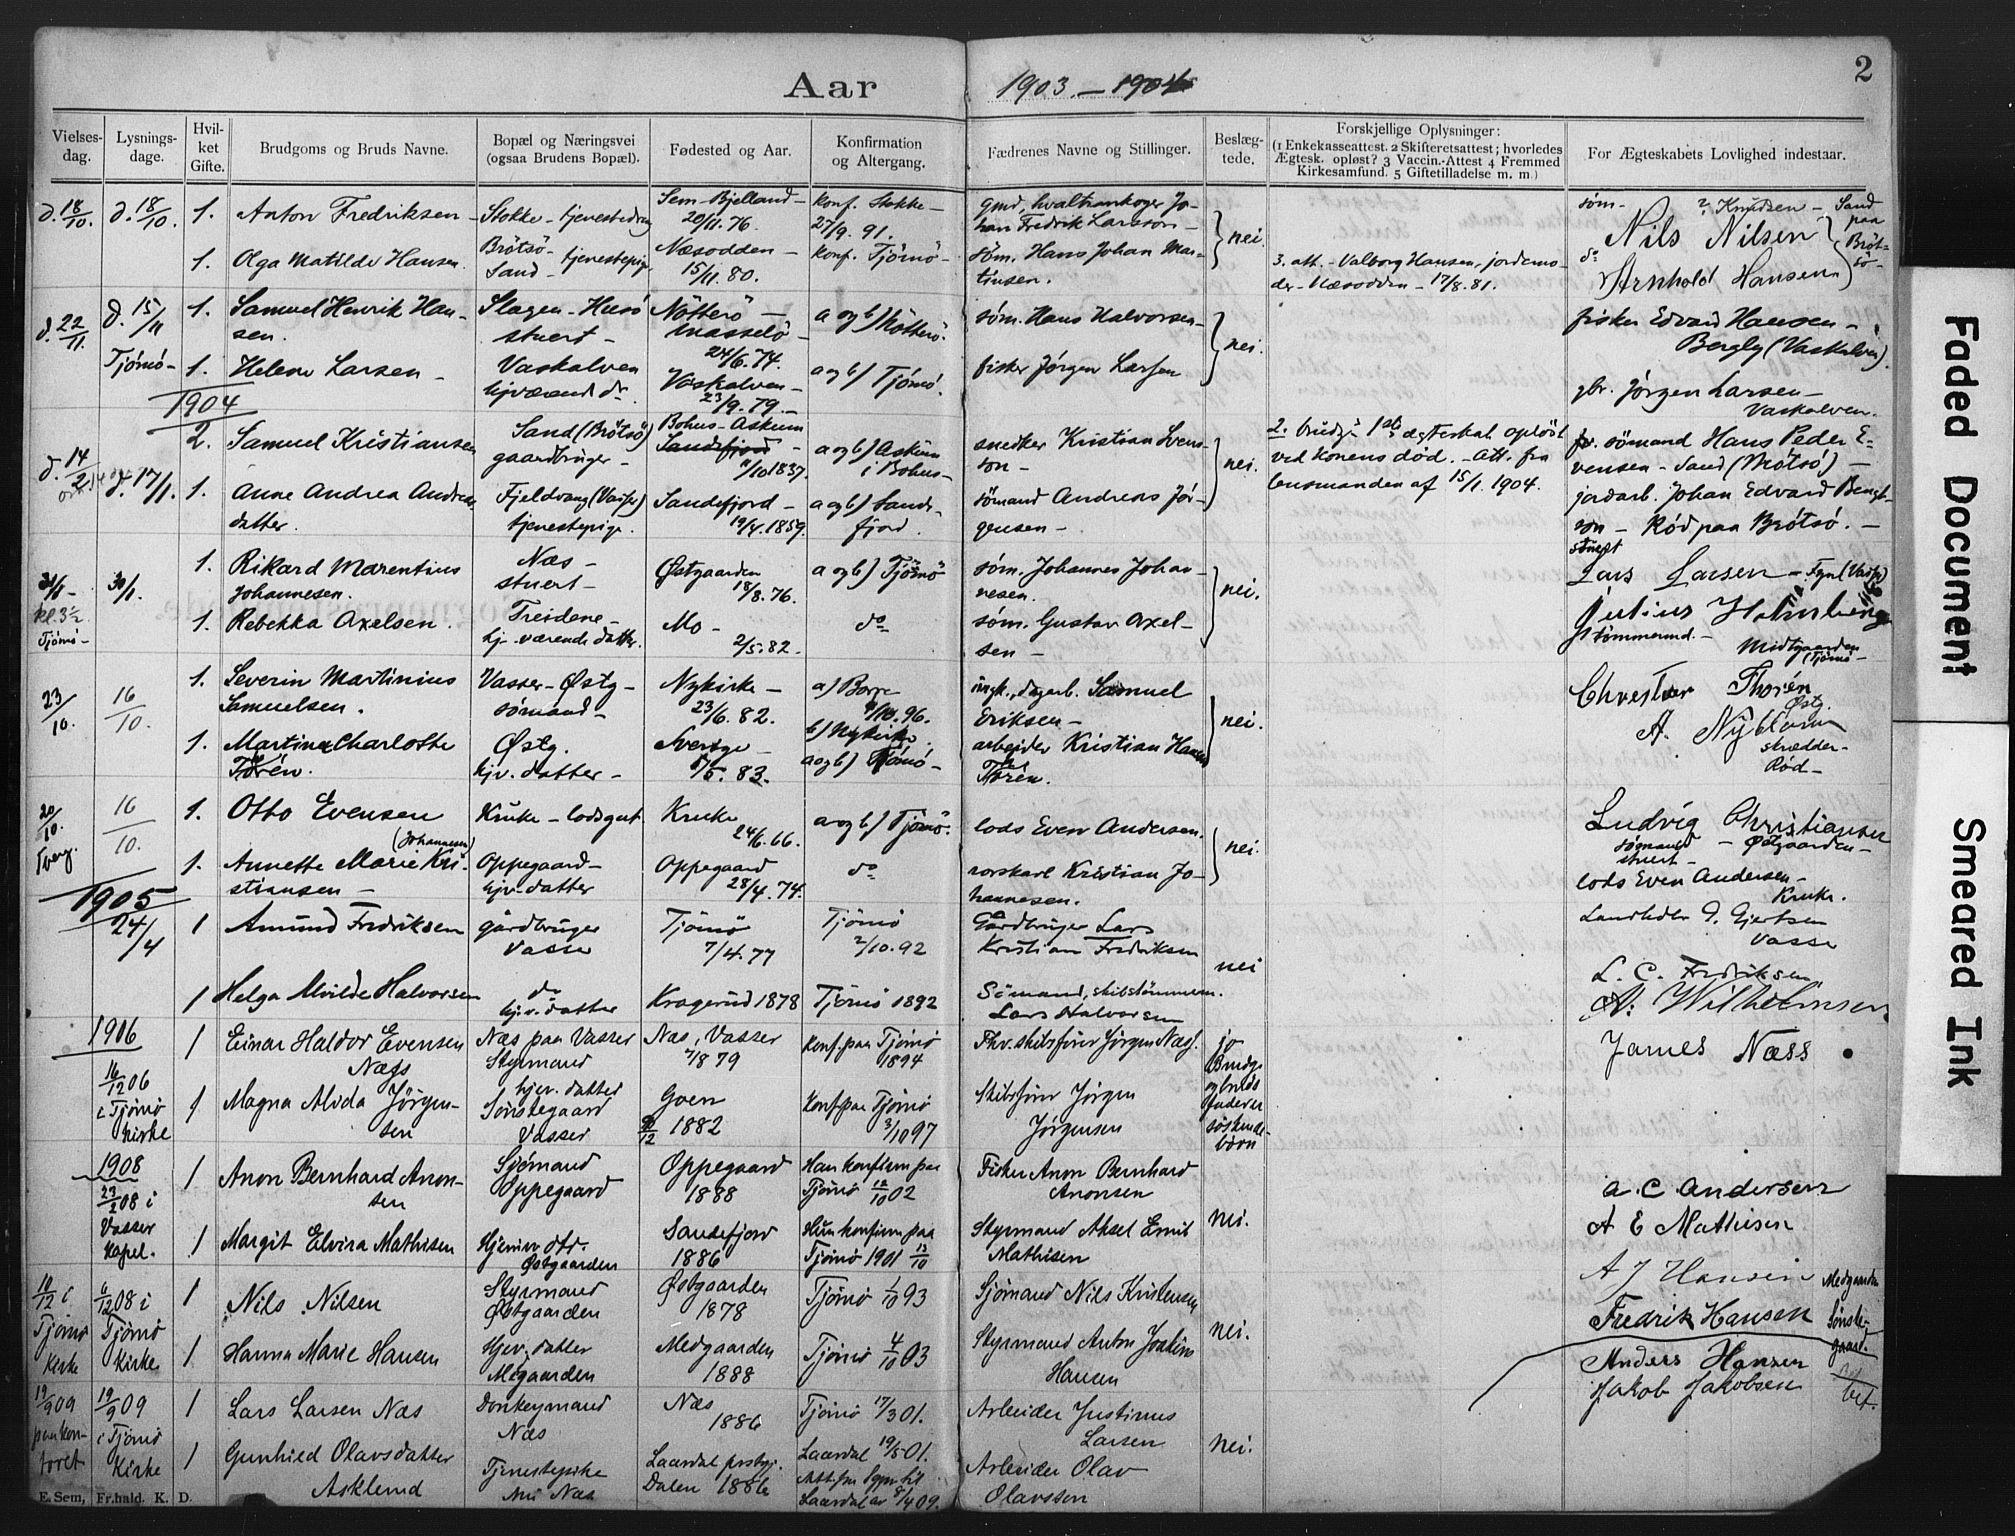 Aar
1903 – 1904
2
Vielses-
dag.
Lysnings-
dage.
Hvil-
ket
Gifte.
Brudgoms og Bruds Navne.
Bopæl og Næringsvei
(ogsaa Brudens Bopæl).
Fødested og Aar.
Konfirmation
og Altergang.
Fædrenes Navne og Stillinger.
Beslæg-
tede.
Forskjellige Oplysninger:
(1 Enkekasseattest. 2 Skifteretsattest; hvorledes
Ægtesk. opløst? 3 Vaccin.-Attest 4 Fremmed
Kirkesamfund. 5 Giftetilladelse m. m.)
For Ægteskabets Lovlighed indestaar.
d. 18/10.
d. 18/10.
1.
Anton Fredriksen –
Stokke – tjenestedreng
Sem – Bjelland –
20/11. 76.
Konf. Stokke –
27/9. 91.
gmd, hvaltrankoger Jo-
han Fredrik Larsson –
nei.
søm. – Knudsen – Sand
paa
Brøt-
sø –
Nils Nilsen
1.
Olga Matilde Hansen.
Brøtsø –
Sand – tjenestepige
Næsodden –
15/11. 80.
Konf. Tjømø –
søm. Hans Johan Mar-
tinsen.
3. att. – Valborg Hansen, jordemo-
der – Næsodden – 17/8. 81.
do
Arnhold Hansen
d. 22/11.
d. 15/11
Tjømø –
1.
Samuel Henrik Han-
sen.
Slagen – Husø
stuert –
Nøtterø –
24/6. 74.
a og b) Nøtterø.
søm. Hans Halvorsen –
nei.
fisker Edvard Hansen –
Bergly (Vaskalven).
1.
Helene Larsen –
Vaskalven
hjværende dr.
Vaskalven –
23/9. 79. –
a og b) Tjømø.
fisker Jørgen Larsen
gbr. Jørgen Larsen –
Vaskalven.
1904
d. 14/2
d. 17/1.
2.
Samuel Kristiansen
Sand (Brøtsø)
gaardbruger –
Bohus – Askum
Sandefjord –
/10 1837.
a og b) Askum
i Bohus –
snedker Kristian Svens-
son –
nei.
2. brudg. 1ste ægteskab opløst
ved konens død. – Att. fra
lensmanden af 15/1. 1904.
sømand Hans Peder E-
vensen – Sand (Brøtsø) –
1.
Anne Andrea Andreas
datter.
Fjeldvang (Vasser)
tjenestepige.
Sandefjord –
19/4. 1859.
a og b) Sande-
fjord.
sømand Andreas Jør-
gensen –
jordarb. Johan Edvard Bengt-
son – Rød paa Brøtsø. –
31/1 –
kl. 3½
Tjømø –
30/1.
1.
Rikard Marentius
Johannesen.
Næs –
stuert –
Østgaarden
18/8. 76.
a og b) Tjømø
søm. Johannes Johan-
nesen.
nei.
stuert
Lars Larsen – Fyn (Vasser)
1.
Rebekka Axelsen.
Treidene –
hj. værende datter.
Mo –
2/5. 82.
do
søm. Gustav Axel-
sen –
Julius Holmberg
tømmermd. –
Midtgaarden
(Tjømø –
23/10.
16/10.
1.
Severin Martinius
Samuelsen.
Vasser – Østg –
sømand –
Nykirke –
23/6. 82.
a) Borre
/10. 96.
b) Nykirke
dagarb. Samuel
Eriksen –
nei.
Christian Thorén
Østg.
1.
Martine Charlotte
Torén.
Østg.
hjv. datter –
Sverige –
/5. 83.
a og b) Tjømø –
arbeider Kristian Hans
Torén.
A. Nyblom
skrædder –
Rød –
20/10.
16/10.
1.
Otto Evensen
Kruke – lodsgut
Kruke
24/6. 66.
a og b) Tjømø.
lods Even Andersen.
nei.
Ludvig Christiansen
sømand – Østgaarden –
stuert –
1.
(Johannesen)
Annette Marie Kri-
stiansen –
Oppegaard –
hjv. datter
Oppegaard
28/4. 74.
do
rorskarl Kristian Jo-
hannesen.
lods Even Andersen –
Kruke.
1905
24/4
1
Amund Fredriksen
gårdbruger
Vasser
Tjømø
7/4. 77
Tjømø
2/10. 92
Gårdbruger Lars
Kristian Fredriksen
nei
Gjertsen
Vasser
1
Helga Alvilde Halvorsen
do
hjv. datter
Kragerud 1878
Tjømø 1892
Sømand, skibstømmerm.
Lars Halvorsen
L. C. Fredriksen
A. Wilhelmsen
1906
16/12 06
i Tjømø
Kirke
1
Einar Haldor Evensen
Næss
Næs paa Vasser
Styrmand
Næs, Vasser
/8 79
Konf. paa Tjømø
1894
Fhv. skibsfører Jørgen Næss.
jo
Brudgs
og bruds
fædre er
søskende-
børn
James Næss
1
Magna Alvida Jørgen-
sen
hjev. datter
Sønstegaard
Vasser
Goen
1882
Konf. paa Tjømø
3/10 97
Skibsfører Jørgen
Jørgensen
1908
23/2 08 i
Vasser
Kapel.
1
Anon Bernhard Anon-
sen
Sjømand
Oppegaard
Oppegaard
1888
Han konfirm paa
Tjømø 12/10 02
Fisker Anon Bernhard
Anonsen
nei.
A. C Andersen
1
Margit Elvira Mathisen
Hjemv. dtr.
Østgaarden
Sandefjord
1886
Hun konfirm paa
Tjømø 1901 13/10
Styrmand Aksel Emil
Mathisen
A E Mathisen
10/12 i
Tjømø
Kirke
6/12 08 i
Tjømø
Kirke
1
Nils Nilsen
Styrmand
Østgaarden
Østgaarden
1878
Tjømø 1/10 93
Sjømand Nils Kristensen
nei.
A J Hansen Medgaarden
Fredrik Hansen Sønste-
gaard.
1
Hanna Marie Hansen
Hjev. datter
Megaarden
Medgaarden
1888
Tjømø 4/10 03
Styrmand Anton Joakim
Hansen
Anders Hansen
Jakob Jakobsen
19/9 09
paa kon-
toret
19/9 09
i Tjømø
Kirke
1
Lars Larsen Næs
Donkeymand
Næs
Næs
1886
Tjømø 17/3 01.
Arbeider Justinus
Larsen
nei.
1
Gunhild Olavsdatter
Asklund
Tjenestepike
Næs
Laardal prstgj.
Dalen 1886
Laardal 19/5 01.
Laardal av 8/4 09.
Arbeider Olav
Olavssen
E. Sem, Fr.hald. K. D.
Faded Document
Smeared Ink